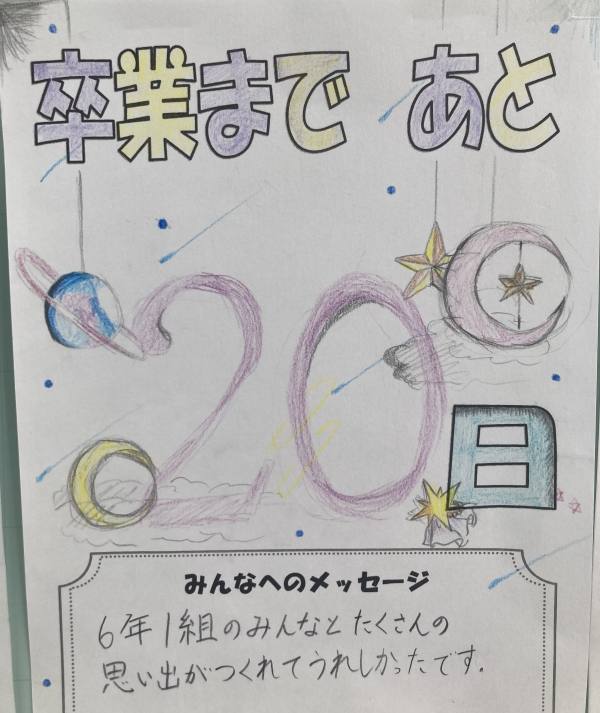 卒業まで あと
20
日
みんなへのメッセージ
6年1組のみんなとたくさんの
思い出がつくれてうれしかったです.